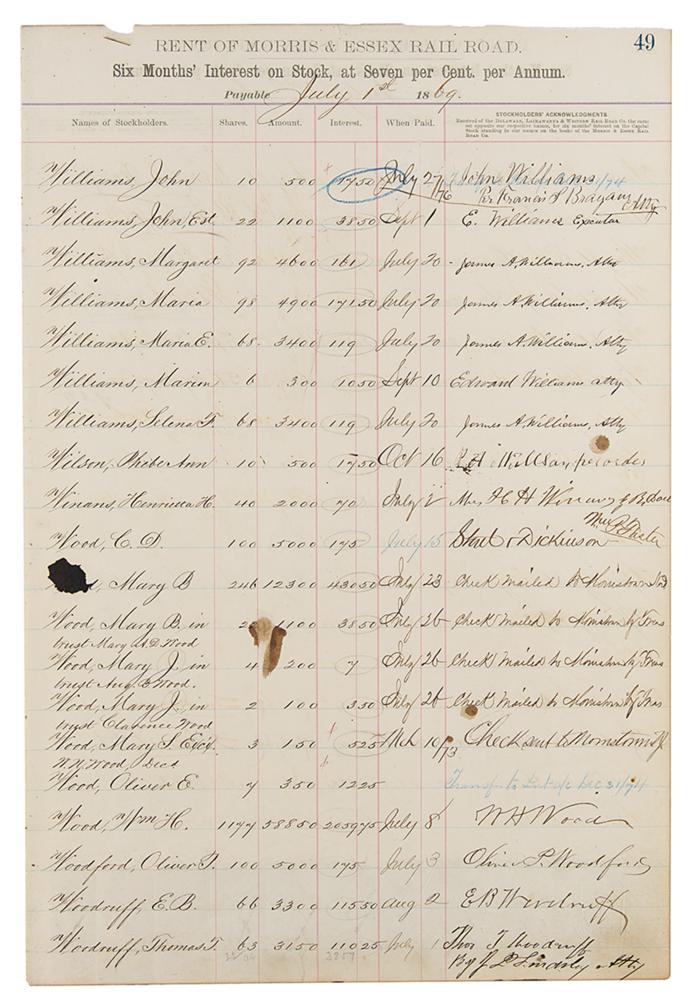 49
RENT OF MORRIS & ESSEX RAIL ROAD.
Six Months' Interest on Stock, at Seven per Cent. per Annum.
Payable July 1st 1869.
Names of Stockholders. Shares. Amount. Interest. When Paid. STOCKHOLDERS' ACKNOWLEDGMENTS
Received of the DELAWARE, LACKAWANNA & WESTERN RAIL ROAD CO. the sums
set opposite our respective names, for six months' interest on the Capital
Stock standing in our names on the books of the MORRIS & ESSEX RAIL
ROAD CO.
Williams, John 10 500 1750 July 27/76 John Williams
Per Francis Atty
Williams, John, Est. 22 1100 3850 Sept 1 E. Williams Executor
Williams, Margaret 92 4600 161 July 20 James A. Williams, Atty
Williams, Maria 98 4900 17150 July 20 James A. Williams, Atty
Williams, Maria E. 68 3400 119 July 20 James A. Williams, Atty
Williams, Marion 6 300 1050 Sept 10 Edward Williams atty
Williams, Selena F. 68 3400 119 July 20 James A. Williams, Atty
Wilson, Phebe Ann 10 500 1750 Oct 16
Winans, Henrietta H. 40 2000 70 July 2 Mrs H H Winans
Wood, C. D. 100 5000 175 July 15 Stout & Dickinson
Mary B 246 12300 43050 July 23 Check mailed to Morristown
Wood, Mary B. in 1100 3850 July 26 Check mailed to Morristown by Treas
trust Mary A. D. Wood
Wood, Mary J. in 4 200 7 July 26 Check mailed to Morristown by Treas
trust Aug. Wood.
Wood, Mary J. in 2 100 350 July 26 Check mailed to Morristown by Treas
trust Clarence Wood
Wood, Mary S. Exec. 3 150 525 Mch 10/73 Check sent to Morristown NJ
Wood, Decd
Wood, Oliver E 7 350 1225 Dec 31/74
Wood, Wm H. 1177 58850 205975 July 8 W H Wood
Woodford, Oliver P. 100 5000 175 July 3 Oliver P. Woodford
Woodruff, E. B. 66 3300 11550 Aug 2 E B Woodruff
Woodruff, Thomas T. 63 3150 11025 July 1 Thos T Woodruff
By J Lindsley Atty